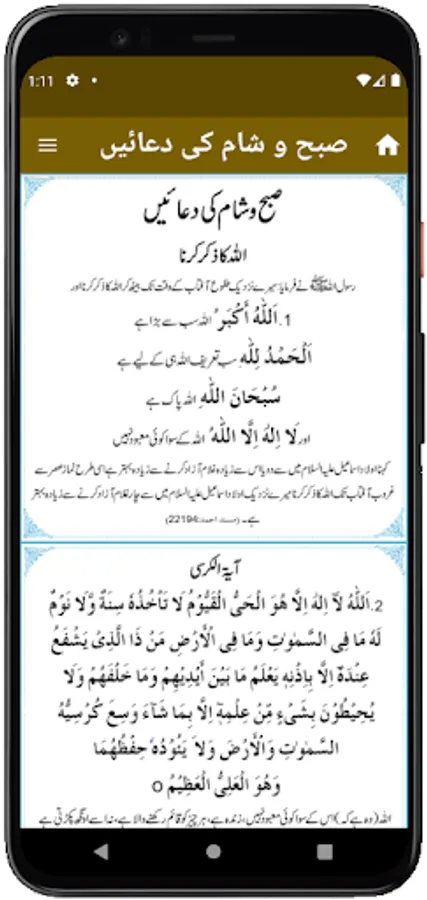 1:11
صبح و شام کی دعائیں
صبح و شام کی دعائیں
اللہ کا ذکر کرنا
رسول اللہ ﷺ نے فرمایا: میرے نزدیک طلوع آفتاب کے وقت تک بیٹھ کر اللہ کا ذکر کرنا اور
1. اَللّٰهُ أَكْبَرُ اللہ سب سے بڑا ہے
اَلْحَمْدُ لِلّٰهِ سب تعریف اللہ ہی کے لیے ہے
سُبْحَانَ اللّٰهِ اللہ پاک ہے
اور لَا إِلٰهَ إِلَّا اللّٰهُ اللہ کے سوا کوئی معبود نہیں
کہنا اولاد اسماعیل علیہ السلام میں سے دو یا اس سے زیادہ غلام آزاد کرنے سے زیادہ بہتر ہے اسی طرح نماز عصر سے
غروب آفتاب تک اللہ کا ذکر کرنا میرے نزدیک اولاد اسماعیل علیہ السلام میں سے چار غلام آزاد کرنے سے زیادہ بہتر
ہے۔ (مسند احمد: 22194)
آیۃ الکرسی
2. اَللّٰهُ لَآ اِلٰهَ اِلَّا هُوَ الْحَيُّ الْقَيُّوْمُ لَا تَأْخُذُهٗ سِنَةٌ وَّلَا نَوْمٌ
لَهٗ مَا فِي السَّمٰوٰتِ وَمَا فِي الْأَرْضِ مَنْ ذَا الَّذِيْ يَشْفَعُ
عِنْدَهٗ اِلَّا بِاِذْنِهٖ يَعْلَمُ مَا بَيْنَ أَيْدِيْهِمْ وَمَا خَلْفَهُمْ وَلَا
يُحِيْطُوْنَ بِشَيْءٍ مِّنْ عِلْمِهٖ اِلَّا بِمَا شَآءَ وَسِعَ كُرْسِيُّهُ
السَّمٰوٰتِ وَالْأَرْضَ وَلَا يَئُوْدُهٗ حِفْظُهُمَا
وَهُوَ الْعَلِيُّ الْعَظِيْمُ ٥
اللہ (وہ ہے کہ) اس کے سوا کوئی معبود نہیں، زندہ ہے، ہر چیز کو قائم رکھنے والا ہے، نہ اسے اونگھ پکڑتی ہے